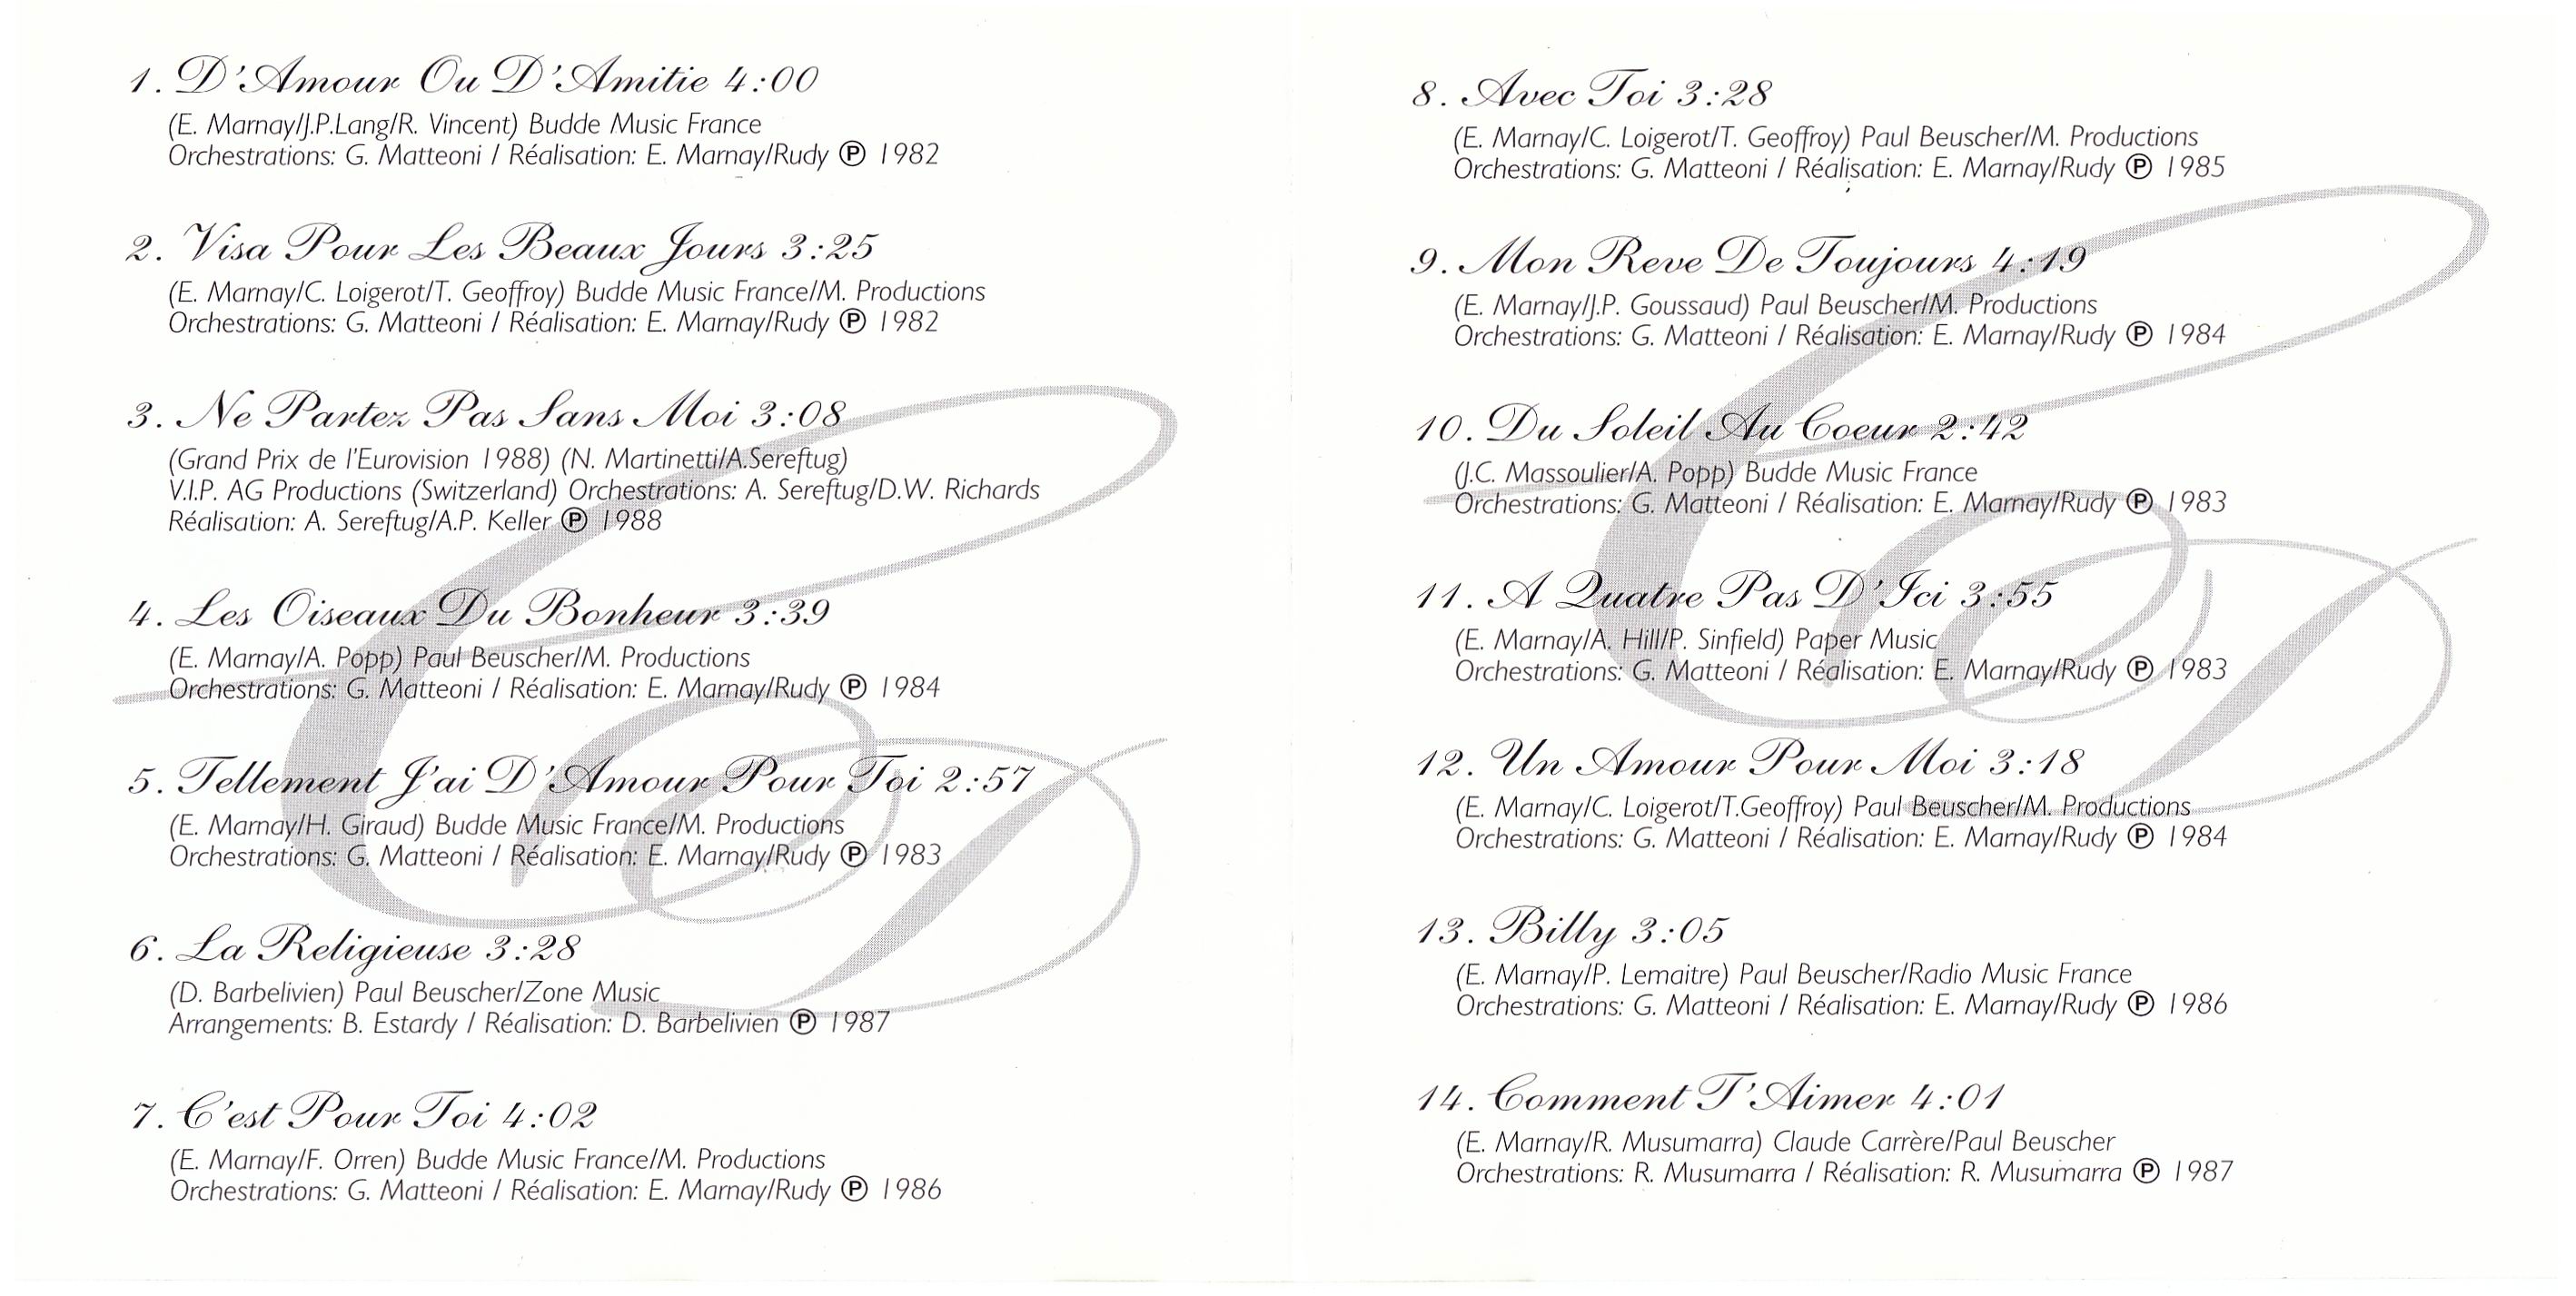 1. D'Amour Ou D'Amitie 4:00
(E. Marnay/J.P.Lang/R. Vincent) Budde Music France
Orchestrations: G. Matteoni / Réalisation: E. Marnay/Rudy ℗ 1982
2. Visa Pour Les Beaux Jours 3:25
(E. Marnay/C. Loigerot/T. Geoffroy) Budde Music France/M. Productions
Orchestrations: G. Matteoni / Réalisation: E. Marnay/Rudy ℗ 1982
3. Ne Partez Pas Sans Moi 3:08
(Grand Prix de l'Eurovision 1988) (N. Martinetti/A.Sereftug)
V.I.P. AG Productions (Switzerland) Orchestrations: A. Sereftug/D.W. Richards
Réalisation: A. Sereftug/A.P. Keller ℗ 1988
4. Les Oiseaux Du Bonheur 3:39
(E. Marnay/A. Popp) Paul Beuscher/M. Productions
Orchestrations: G. Matteoni / Réalisation: E. Marnay/Rudy ℗ 1984
5. Tellement J'ai D'Amour Pour Toi 2:57
(E. Marnay/H. Giraud) Budde Music France/M. Productions
Orchestrations: G. Matteoni / Réalisation: E. Marnay/Rudy ℗ 1983
6. La Religieuse 3:28
(D. Barbelivien) Paul Beuscher/Zone Music
Arrangements: B. Estardy / Réalisation: D. Barbelivien ℗ 1987
7. C'est Pour Toi 4:02
(E. Marnay/F. Orren) Budde Music France/M. Productions
Orchestrations: G. Matteoni / Réalisation: E. Marnay/Rudy ℗ 1986
8. Avec Toi 3:28
(E. Marnay/C. Loigerot/T. Geoffroy) Paul Beuscher/M. Productions
Orchestrations: G. Matteoni / Réalisation: E. Marnay/Rudy ℗ 1985
9. Mon Reve De Toujours 4:19
(E. Marnay/J.P. Goussaud) Paul Beuscher/M. Productions
Orchestrations: G. Matteoni / Réalisation: E. Marnay/Rudy ℗ 1984
10. Du Soleil Au Coeur 2:42
(J.C. Massoulier/A. Popp) Budde Music France
Orchestrations: G. Matteoni / Réalisation: E. Marnay/Rudy ℗ 1983
11. A Quatre Pas D'Ici 3:55
(E. Marnay/A. Hill/P. Sinfield) Paper Music
Orchestrations: G. Matteoni / Réalisation: E. Marnay/Rudy ℗ 1983
12. Un Amour Pour Moi 3:18
(E. Marnay/C. Loigerot/T.Geoffroy) Paul Beuscher/M. Productions
Orchestrations: G. Matteoni / Réalisation: E. Marnay/Rudy ℗ 1984
13. Billy 3:05
(E. Marnay/P. Lemaitre) Paul Beuscher/Radio Music France
Orchestrations: G. Matteoni / Réalisation: E. Marnay/Rudy ℗ 1986
14. Comment T'Aimer 4:01
(E. Marnay/R. Musumarra) Claude Carrère/Paul Beuscher
Orchestrations: R. Musumarra / Réalisation: R. Musumarra ℗ 1987
CD
CD